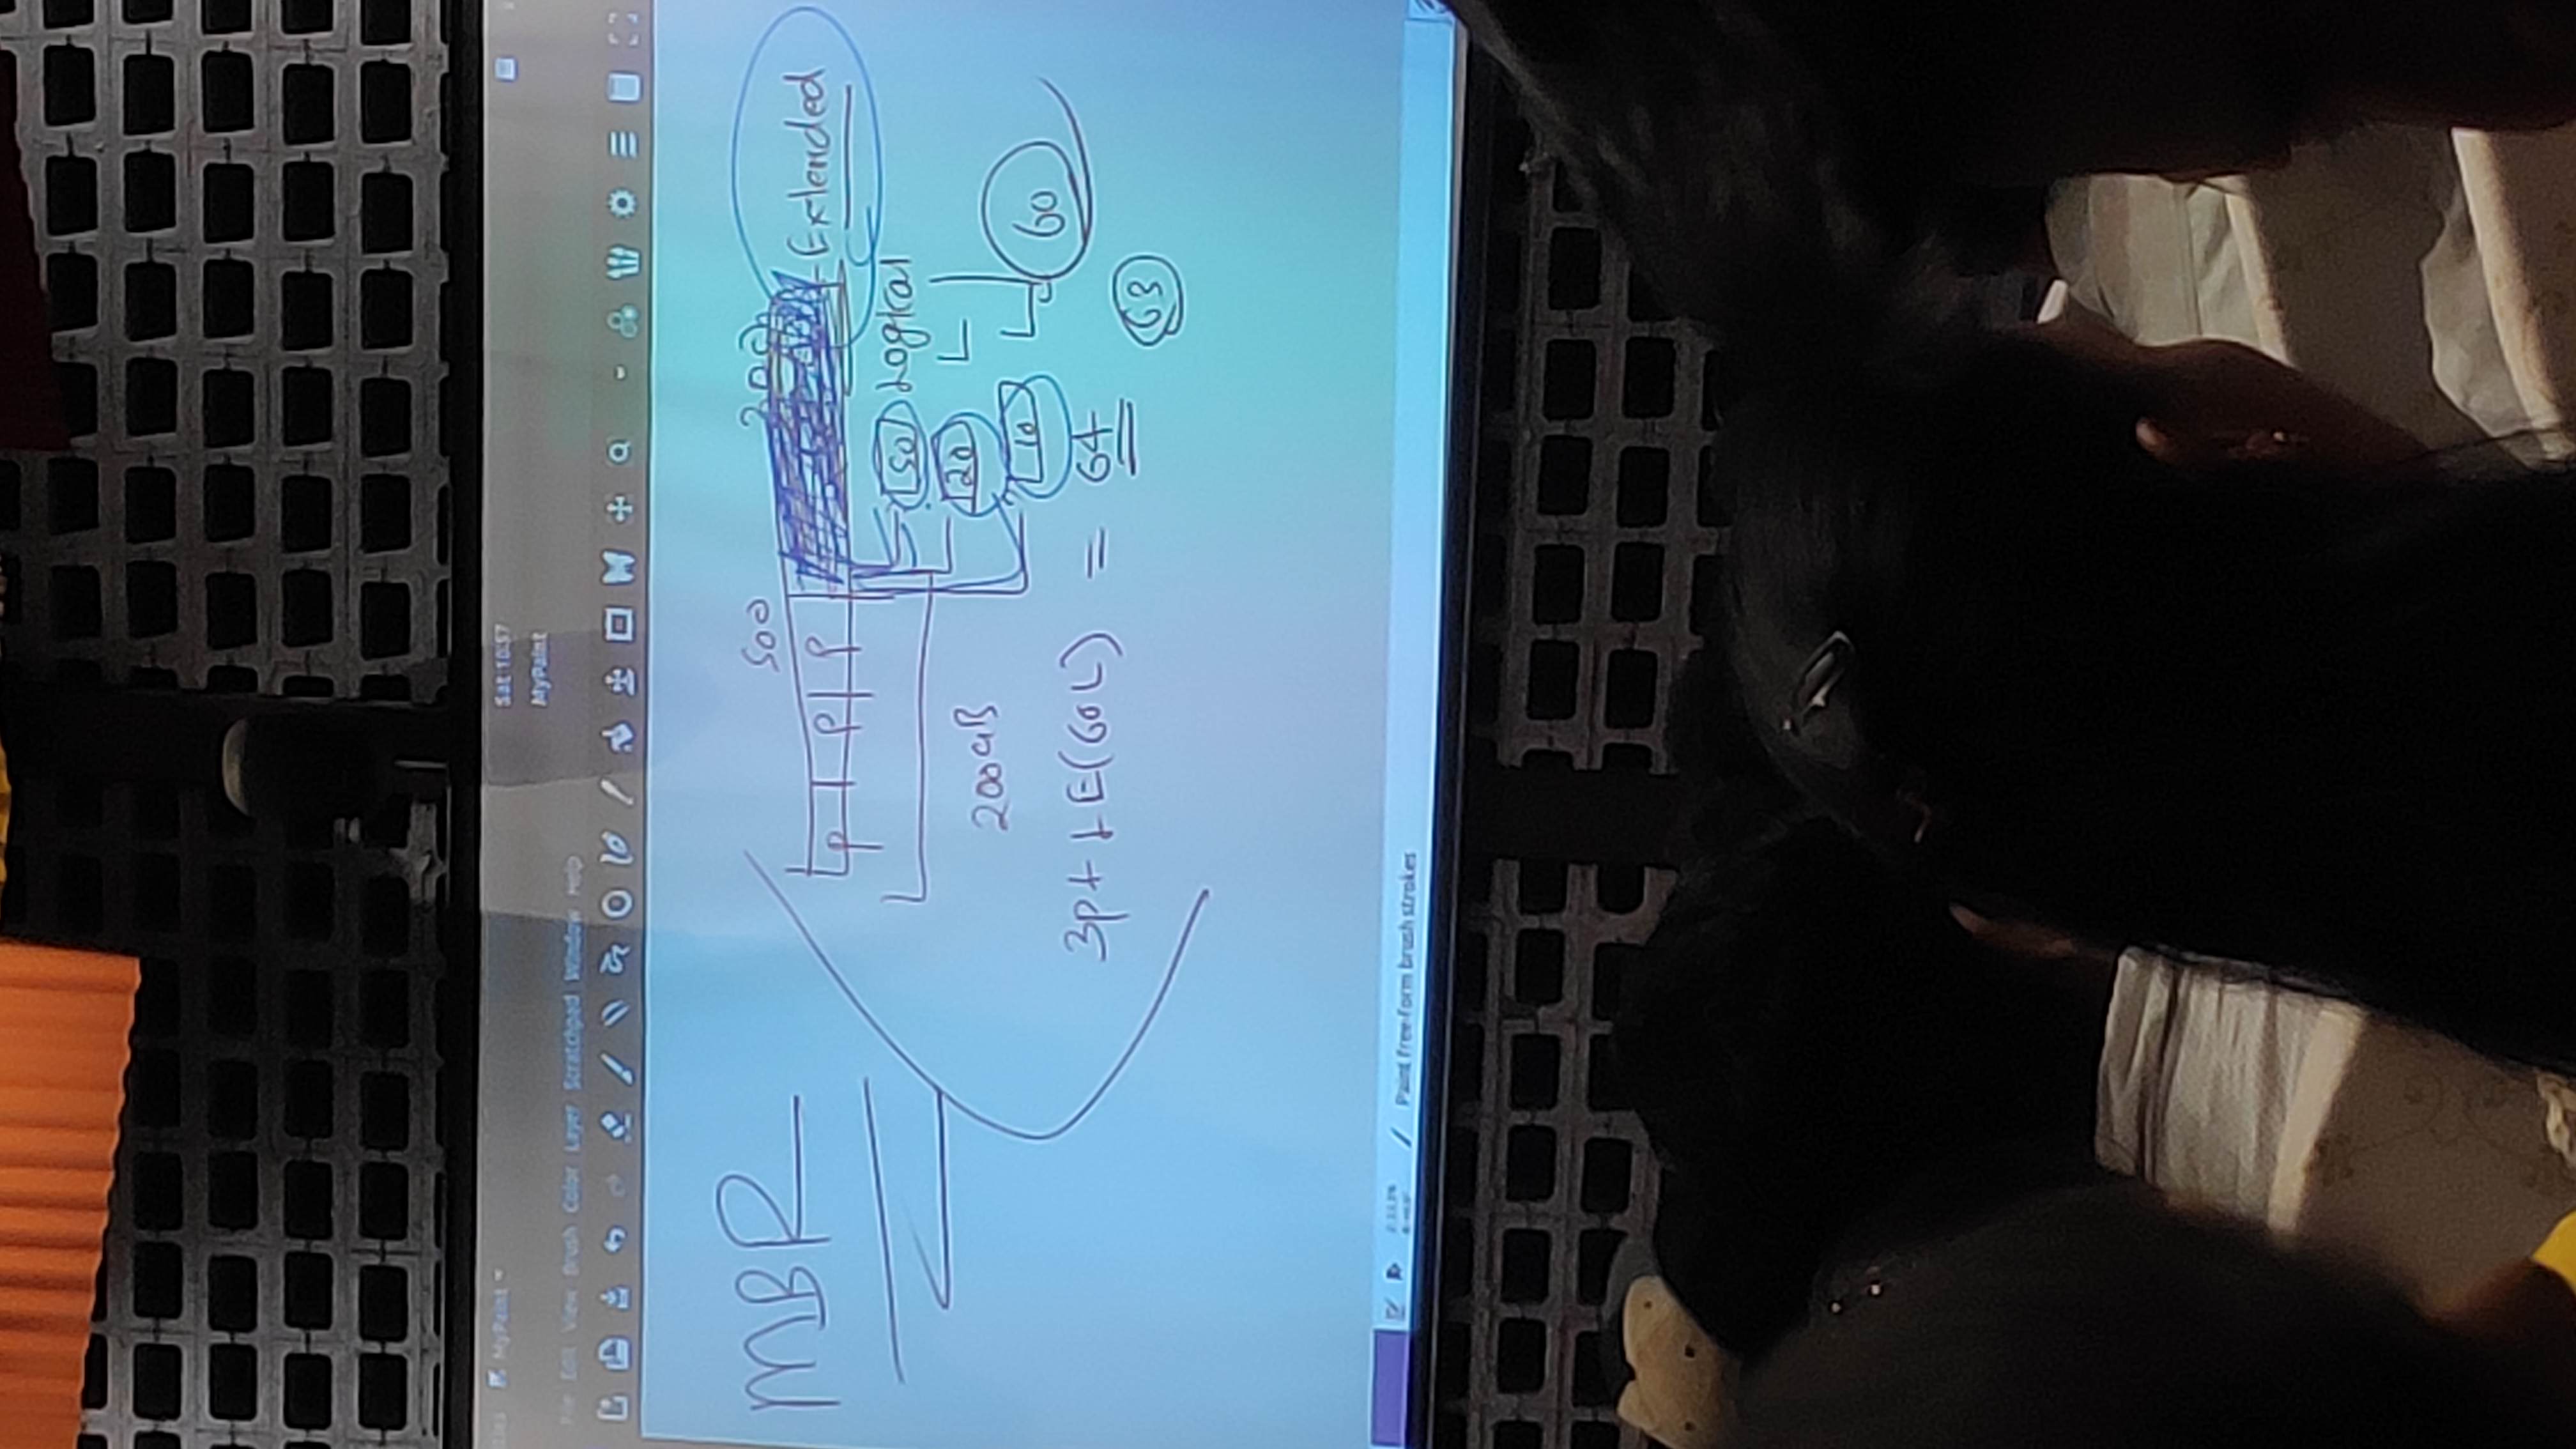 MyPaint
Sat 10:57
MyPaint
File Edit View Brush Color Layer Scratchpad Window Help
MBR
500
P P P
Extended
50 Logical
20 L
10 L
60
200GB
3P+1E(60L) = 64
63
Paint free-form brush strokes